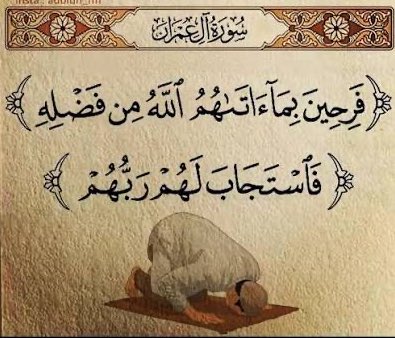 سُورَةُ آلِ عِمْرَانَ
﴿فَرِحِينَ بِمَآ ءَاتَىٰهُمُ ٱللَّهُ مِن فَضْلِهِ﴾
﴿فَٱسْتَجَابَ لَهُمْ رَبُّهُمْ﴾